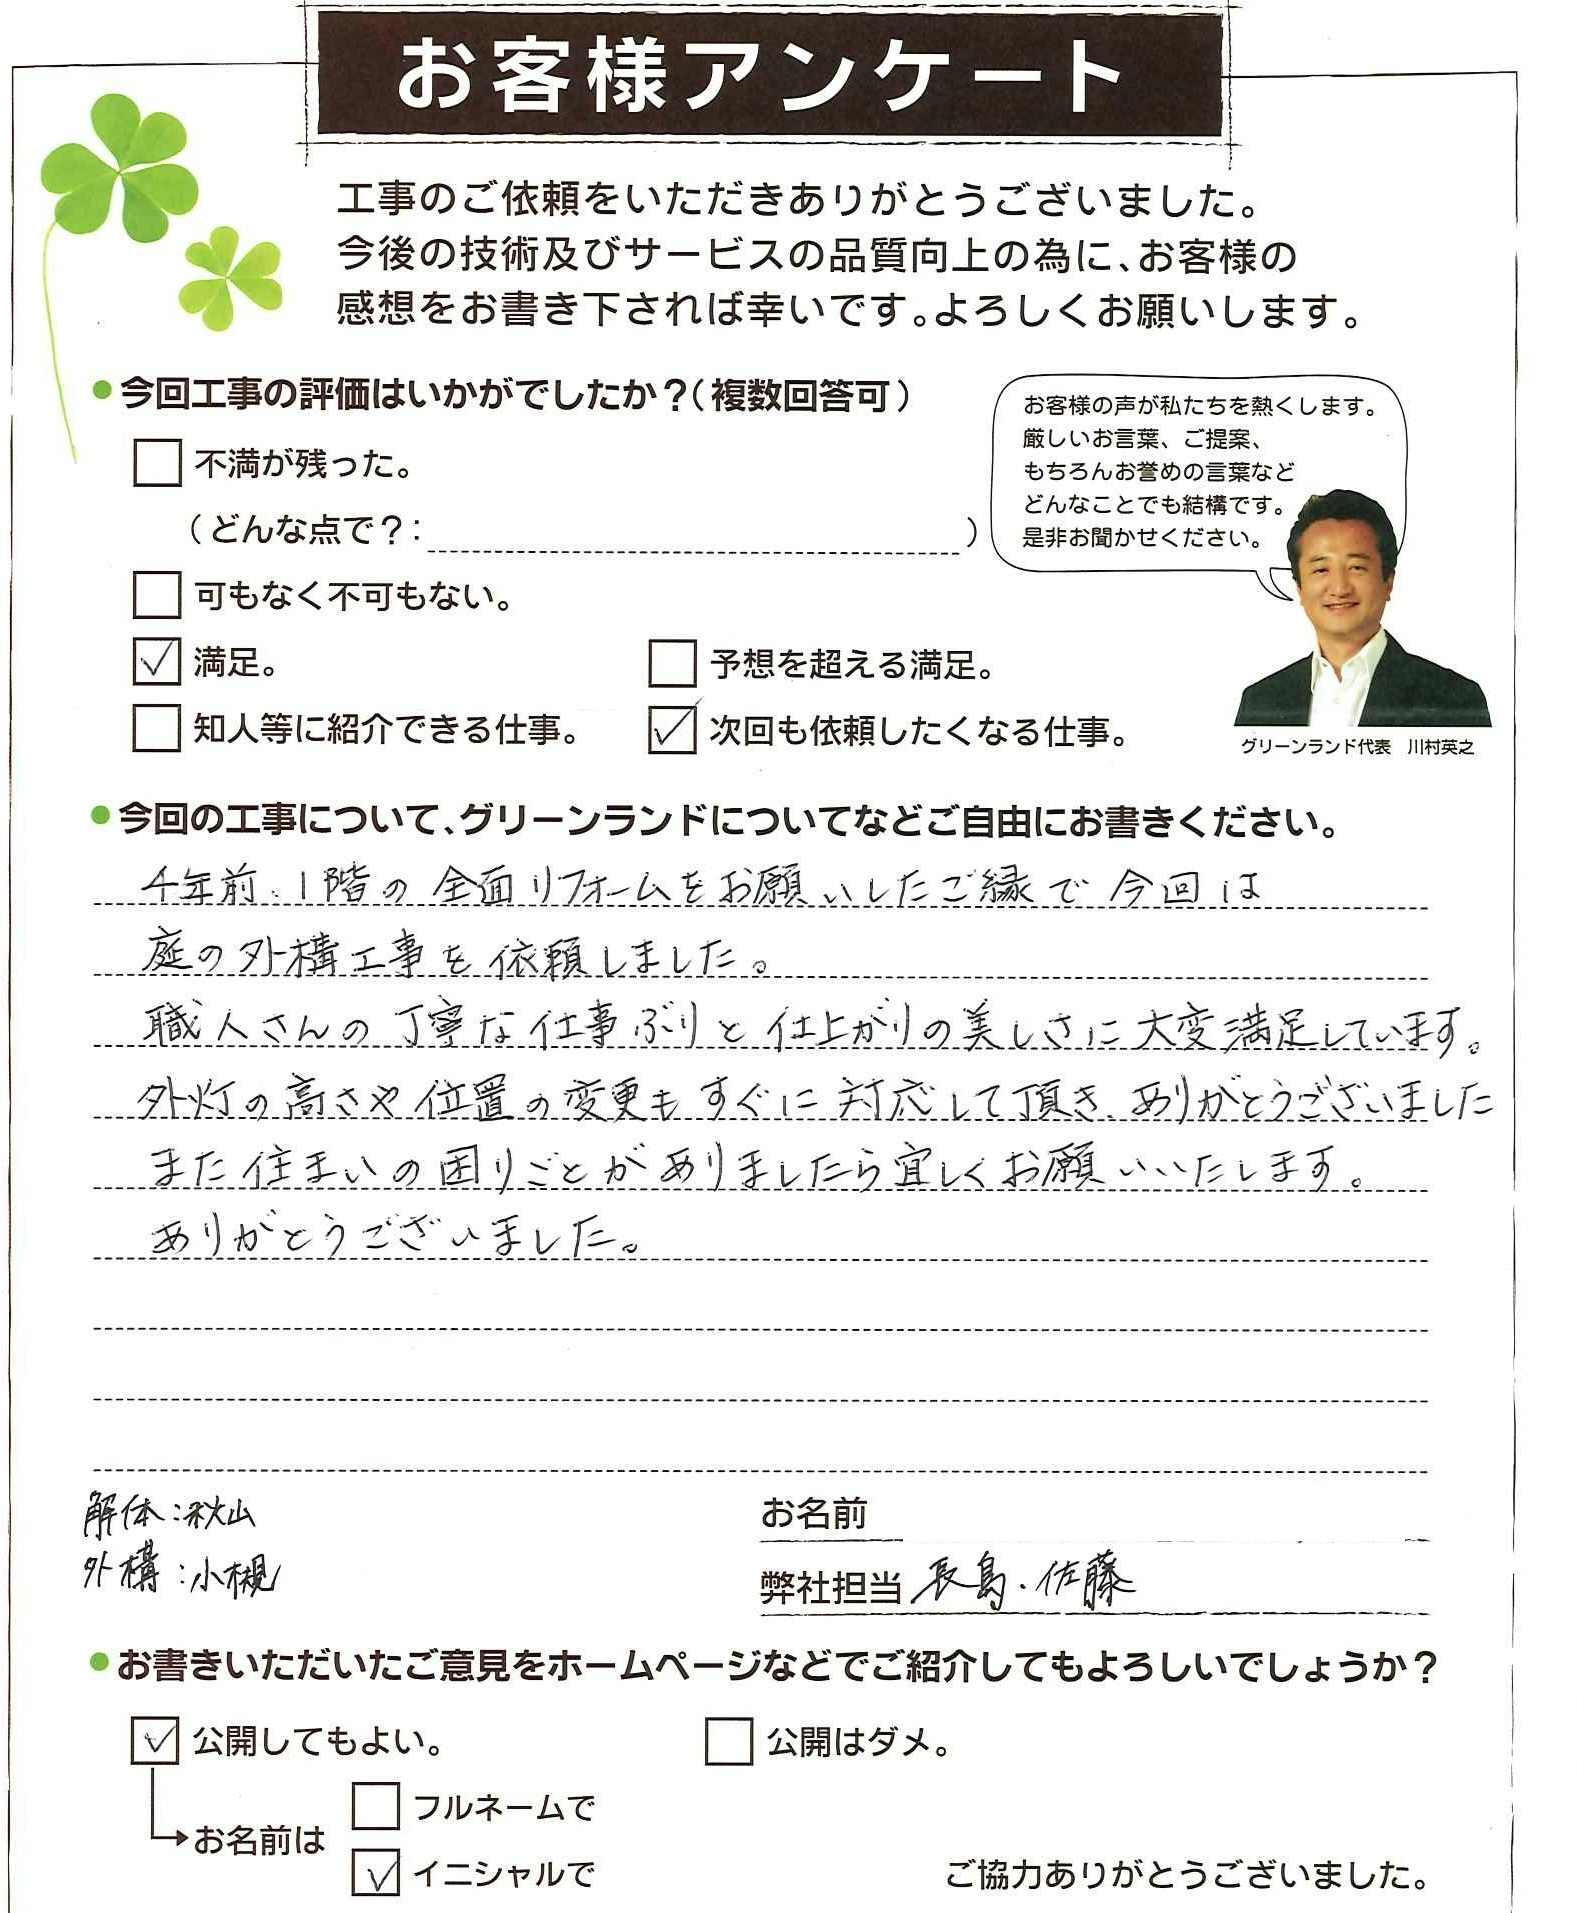 お客様アンケート
工事のご依頼をいただきありがとうございました。
今後の技術及びサービスの品質向上の為に、お客様の
感想をお書き下されれば幸いです。よろしくお願いします。
●今回工事の評価はいかがでしたか？（複数回答可）
お客様の声が私たちを熱くします。
厳しいお言葉、ご提案、
もちろんお誉めの言葉など
どんなことでも結構です。
是非お聞かせください。
グリーンランド代表 川村英之
□ 不満が残った。
（どんな点で？： ）
□ 可もなく不可もない。
☑ 満足。 □ 予想を超える満足。
□ 知人等に紹介できる仕事。 ☑ 次回も依頼したくなる仕事。
●今回の工事について、グリーンランドについてなどご自由にお書きください。
4年前、1階の全面リフォームをお願いしたご縁で今回は
庭の外構工事を依頼しました。
職人さんの丁寧な仕事ぶりと仕上がりの美しさに大変満足しています。
外灯の高さや位置の変更もすぐに対応して頂き、ありがとうございました
また住まいの困りごとがありましたら宜しくお願いいたします。
ありがとうございました。
解体：秋山
外構：小槻
お名前
弊社担当 長島・佐藤
●お書きいただいたご意見をホームページなどでご紹介してもよろしいでしょうか？
☑ 公開してもよい。 □ 公開はダメ。
→お名前は
□ フルネームで
☑ イニシャルで
ご協力ありがとうございました。